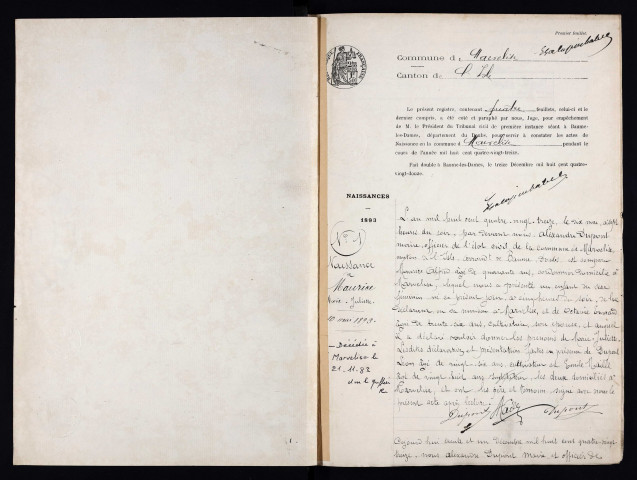 Premier feuillet
Commune de Marvelise
Canton de L'Isle
Le présent registre, contenant quatre feuillets, celui-ci et le
dernier compris, a été coté et paraphé par nous, Juge, pour empêchement
de M. le Président du Tribunal civil de première instance séant à Baume-
les-Dames, département du Doubs, pour servir à constater les actes de
Naissance en la commune de Marvelise pendant le
cours de l'année mil huit cent quatre-vingt-treize.
Fait double à Baume-les-Dames, le treize Décembre mil huit cent quatre-
vingt-douze.
NAISSANCES
1893
N° 1
Naissance
de
Maurice
Juliette
10 mai 1893
— Décédée à
Marvelise le
21.11.82
L'an mil huit cent quatre-vingt treize, le dix mai, à sept
heures du soir, par devant nous, Alexandre Dupont
maire officier de l'état civil de la commune de Marvelise
canton de l'Isle, arrond. de Baume, Doubs, est comparu
Maurice Alfred âgé de quarante ans, cordonnier domicilié à
Marvelise, lequel nous a présenté un enfant du sexe
féminin, né ce présent jour, du
déclarant en sa maison à Marvelise, et de
âgée de trente six ans, cultivatrice, son épouse, et auquel
il a déclaré vouloir donner les prénoms de Juliette
Lesdites déclaration et présentation faites en présence de Dupont
Léon âgé de vingt six ans, cultivateur et Emile
âgé de vingt huit ans, les deux domiciliés à
Marvelise, et ont les père et témoins signé avec nous le
présent acte après lecture.
Dupont Dupont
Aujourd'hui trente et un décembre mil huit cent quatre-vingt
treize, nous Alexandre Dupont maire et officier de